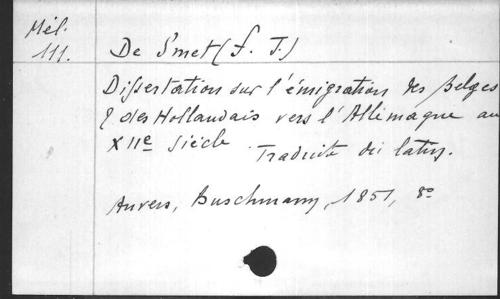 Mél.
111.
De Smet (f. J.)
Dissertation sur l'émigration des Belges
& des Hollandais vers l'Allemagne au
XIIe siècle. Traduite du latin.
Anvers, Buschmann, 1851, 8o